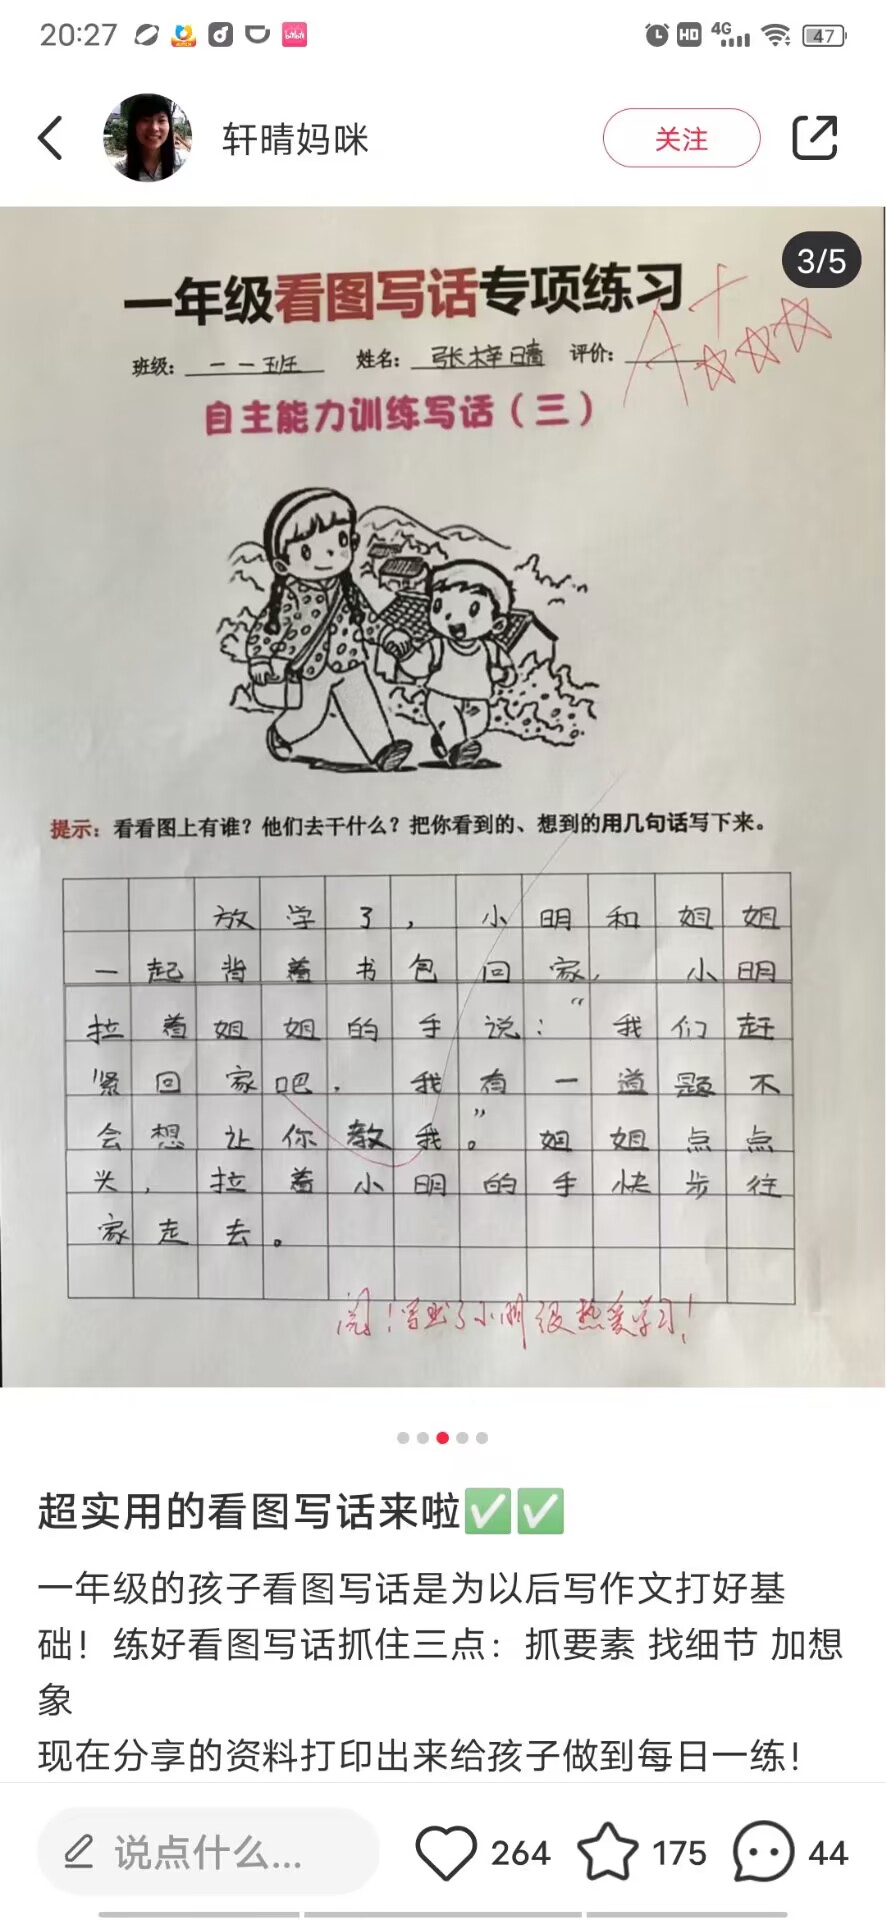 20:27
HD 4G 47
轩晴妈咪
关注
3/5
一年级看图写话专项练习
A+
班级：一一班 姓名：张梓晴 评价：
自主能力训练写话（三）
提示：看看图上有谁？他们去干什么？把你看到的、想到的用几句话写下来。
放学了，小明和姐姐
一起背着书包回家，小明
拉着姐姐的手说：“我们赶
紧回家吧，我有一道题不
会想让你教我。”姐姐点点
头，拉着小明的手快步往
家走去。
阅！写出了小明很热爱学习！
超实用的看图写话来啦✅✅
一年级的孩子看图写话是为以后写作文打好基
础！练好看图写话抓住三点：抓要素 找细节 加想
象
现在分享的资料打印出来给孩子做到每日一练！
说点什么...
264
175
44